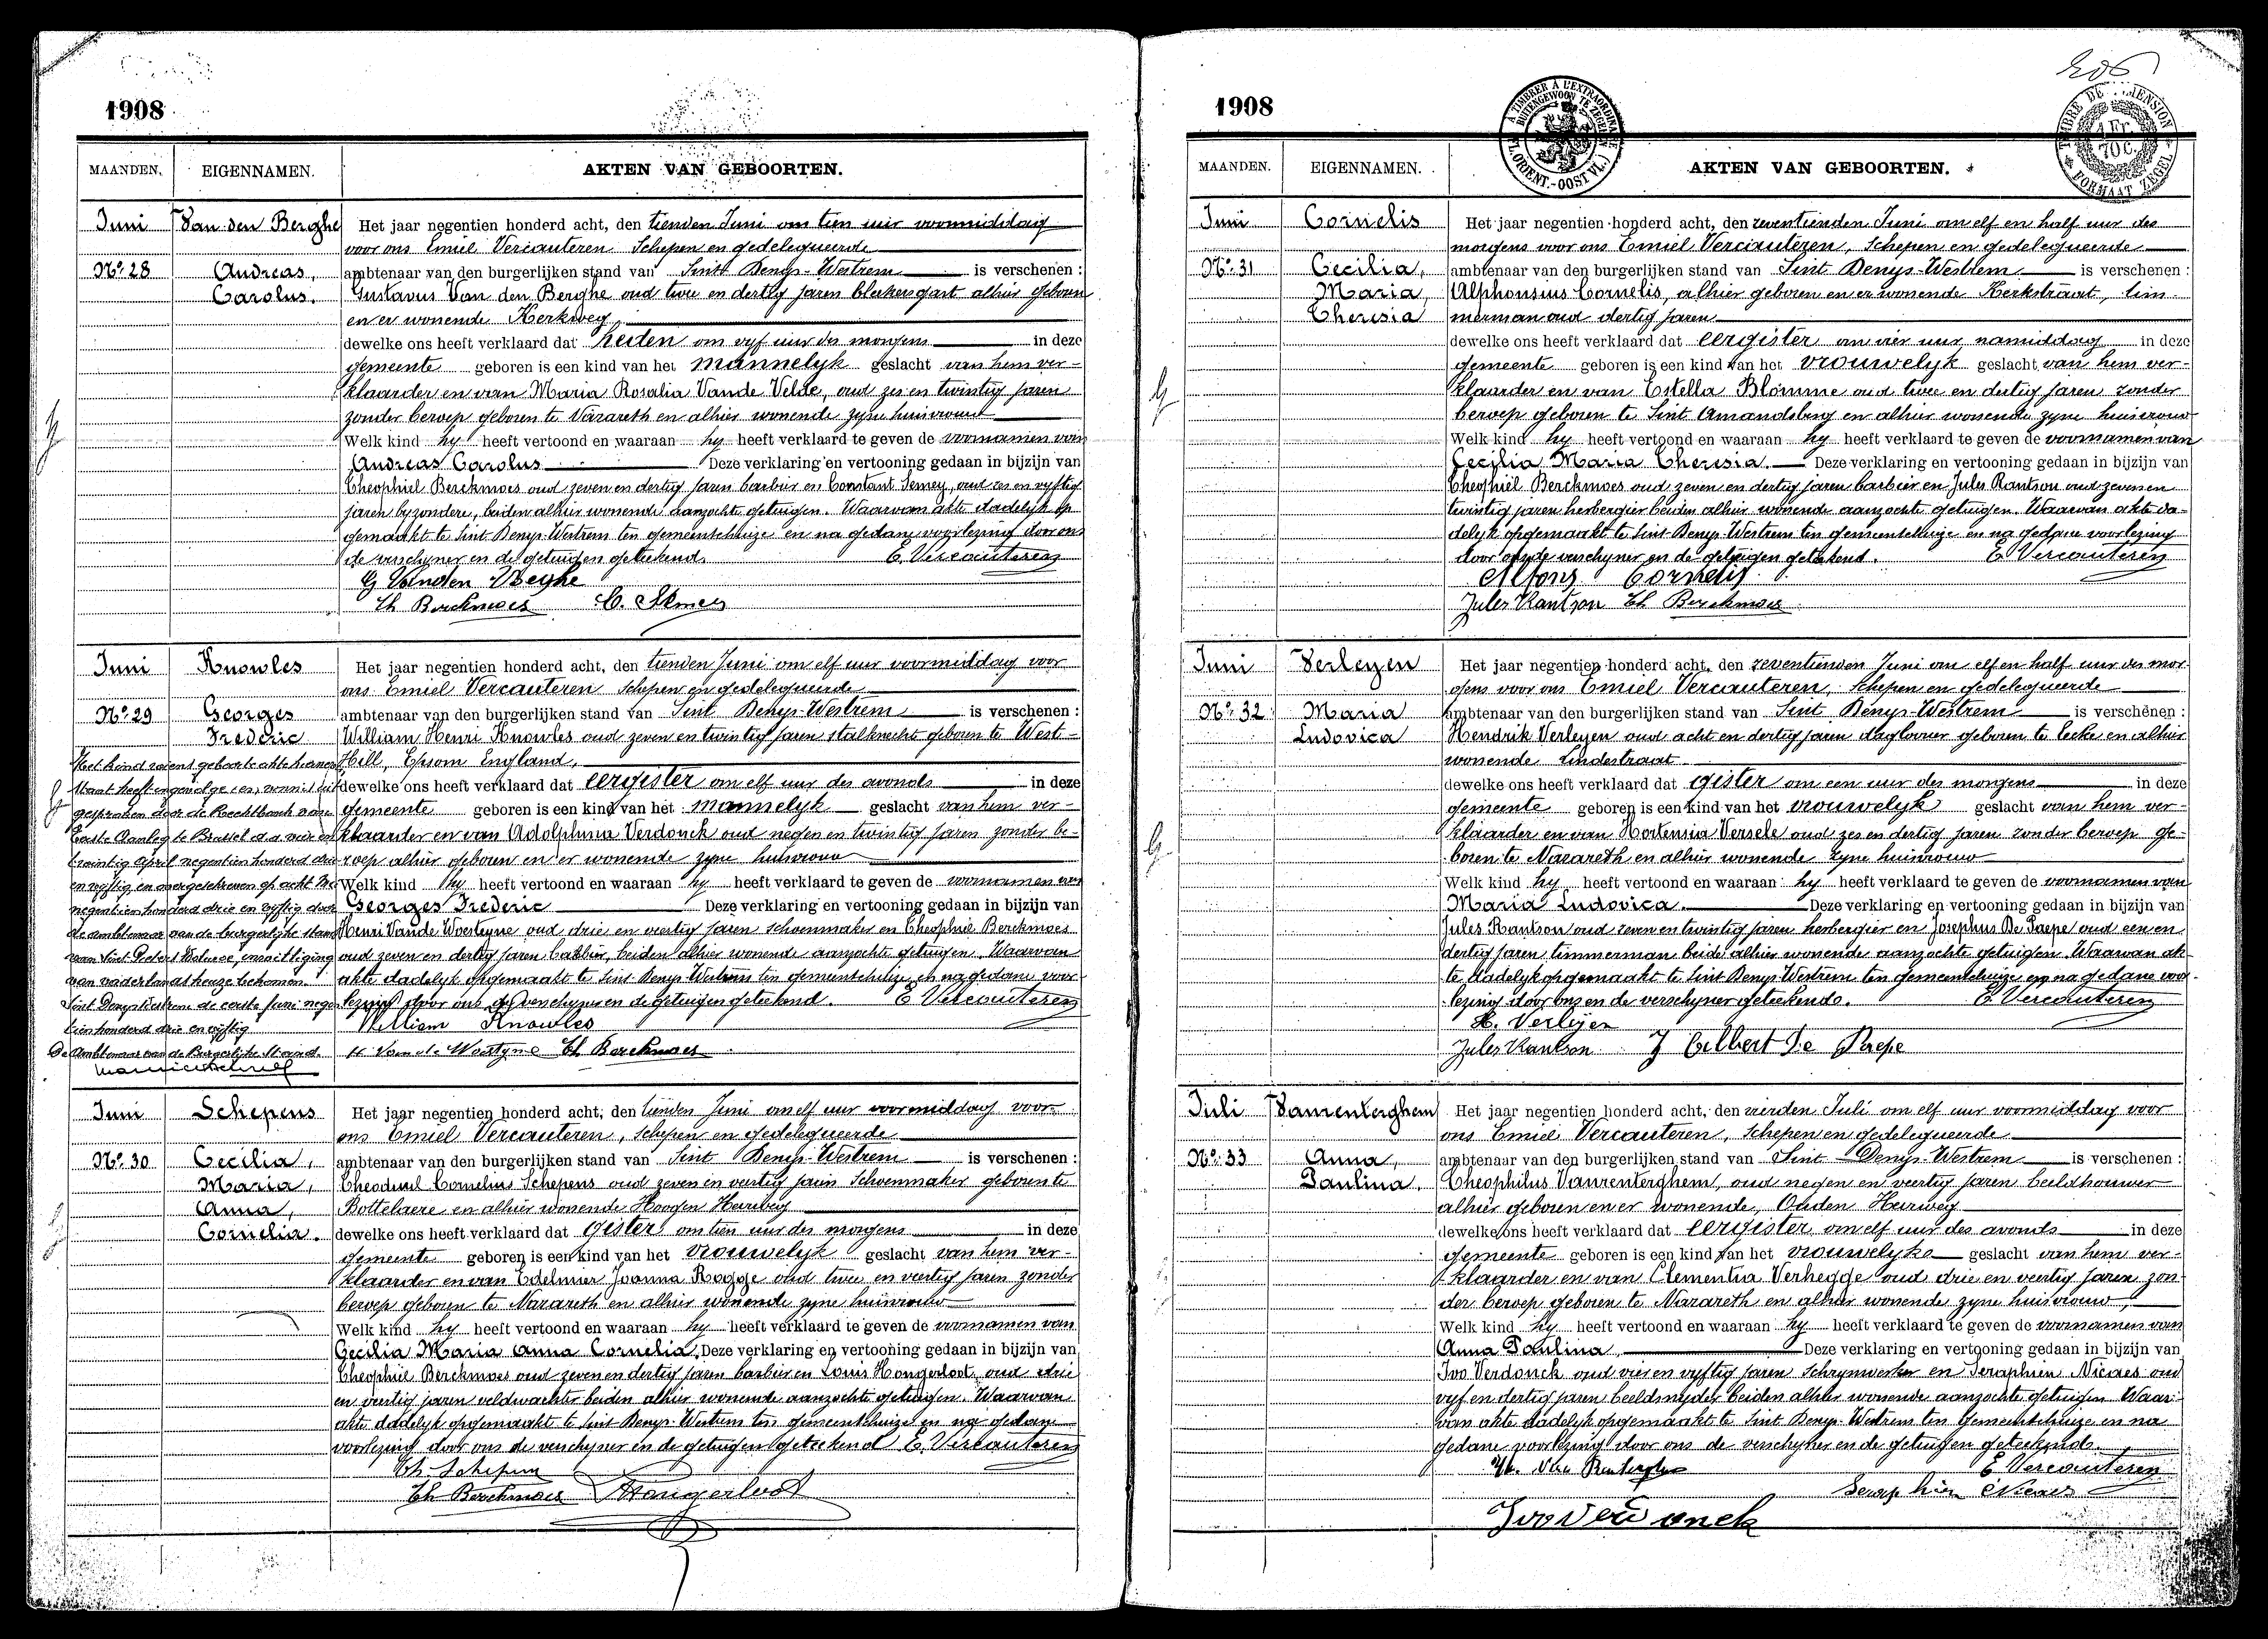 1908
MAANDEN. EIGENNAMEN. AKTEN VAN GEBOORTEN.
Juni Van den Berghe Het jaar negentien honderd acht, den tienden Juni om tien uur voormiddag
voor ons Emiel Vercauteren Schepen en gedelegueerde
No. 28 Andreas, ambtenaar van den burgerlijken stand van Sint Denys-Westrem is verschenen :
Carolus. Gustavus Van den Berghe oud twee en dertig jaren bleekersgast alhier geboren
en er wonende Kerkweg
dewelke ons heeft verklaard dat heden om vyf uur des morgens in deze
gemeente geboren is een kind van het mannelyk geslacht van hem ver-
klaarder en van Maria Rosalia Vande Velde, oud zes en twintig jaren
zonder beroep geboren te Nazareth en alhier wonende zyne huisvrouw
Welk kind hy heeft vertoond en waaraan hy heeft verklaard te geven de voornamen van
Andreas Carolus Deze verklaring en vertooning gedaan in bijzijn van
Theophiel Berckmoes oud zeven en dertig jaren barbier en Constant Semey, oud en vyftig
jaren byzondere, beiden alhier wonende aanzochte getuigen. Waarvan akte dadelyk op
gemaakt te Sint Denys-Westrem ten gemeentehuize en na gedane voorlezing door ons
de verschyner en de getuigen geteekend. E. Vercauteren
G Vanden Beghe
Th Berckmoes C. Semey
Juni Knowles Het jaar negentien honderd acht, den tienden Juni om elf uur voormiddag voor
ons Emiel Vercauteren schepen en gedelegueerde
No. 29 Georges ambtenaar van den burgerlijken stand van Sint Denys-Westrem is verschenen :
Frederic William Henri Knowles oud zeven en twintig jaren stalknecht geboren te West-
Hill, Epsom England,
dewelke ons heeft verklaard dat eergister om elf uur des avonds in deze
gemeente geboren is een kind van het mannelyk geslacht van hem ver-
klaarder en van Adolphina Verdonck oud negen en twintig jaren zonder be-
roep alhier geboren en er wonende zyne huisvrouw
Welk kind hy heeft vertoond en waaraan hy heeft verklaard te geven de voornamen van
Georges Frederic Deze verklaring en vertooning gedaan in bijzijn van
Henri Vande Woesteyne oud drie en veertig jaren schoenmaker en Theophiel Berckmoes
oud zeven en dertig jaren barbier, beiden alhier wonende aanzochte getuigen. Waarvan
akte dadelyk opgemaakt te Sint Denys-Westrem ten gemeentehuize en na gedane voor
lezing door ons de verschyner en de getuigen geteekend. E Vercauteren
William Knowles
H Van de Woestyne Th Berckmoes
Het kind wiens geboorte akte hiernevens
staat heeft ingevolge een vonnis uit
gesproken door de Rechtbank van
Eerste Aanleg te Brussel d.d. vier en
twintig April negentien honderd drie
en vyftig en overgeschreven op acht Mei
negentien honderd drie en vyftig door
de ambtenaar van de burgerlijke stand
van Sint Pieters Woluwe, machtiging
van vaderlandskeuze bekomen.
Sint Denys Westrem de eerste Juni negen
tien honderd drie en vyftig
De Ambtenaar van de Burgerlijke Stand.
Juni Schepens Het jaar negentien honderd acht, den tienden Juni om elf uur voormiddag voor
ons Emiel Vercauteren, schepen en gedelegueerde
No. 30 Cecilia, ambtenaar van den burgerlijken stand van Sint Denys-Westrem is verschenen :
Maria, Theoduul Cornelius Schepens oud zeven en veertig jaren Schoenmaker geboren te
Anna, Bottelaere en alhier wonende Hoogen Heerweg
Cornelia. dewelke ons heeft verklaard dat gister om tien uur des morgens in deze
gemeente geboren is een kind van het vrouwelyk geslacht van hem ver-
klaarder en van Edelmier Joanna Rogge oud twee en veertig jaren zonder
beroep geboren te Nazareth en alhier wonende zyne huisvrouw
Welk kind hy heeft vertoond en waaraan hy heeft verklaard te geven de voornamen van
Cecilia Maria Anna Cornelia. Deze verklaring en vertooning gedaan in bijzijn van
Theophiel Berckmoes oud zeven en dertig jaren barbier en Louis Hongerloot oud drie
en veertig jaren veldwachter beiden alhier wonende aanzochte getuigen. Waarvan
akte dadelyk opgemaakt te Sint Denys-Westrem ten gemeentehuize en na gedane
voorlezing door ons de verschyner en de getuigen geteekend E. Vercauteren
Th Schepens
Th Berckmoes Hongerloot
206
1908
A TIMBRER À L'EXTRAORDINAIRE
BUITENGEWOON TE ZEGELEN
FL. ORIENT.-OOST VL.
TIMBRE DE DIMENSION
1 Fr. 70 C.
FORMAAT ZEGEL
MAANDEN. EIGENNAMEN. AKTEN VAN GEBOORTEN.
Juni Cornelis Het jaar negentien honderd acht, den zeventienden Juni om elf en half uur des
morgens voor ons Emiel Vercauteren, Schepen en gedelegueerde
No. 31 Cecilia, ambtenaar van den burgerlijken stand van Sint Denys-Westrem is verschenen :
Maria, Alphonsius Cornelis, alhier geboren en er wonende Kerkstraat, tim
Theresia merman oud dertig jaren
dewelke ons heeft verklaard dat eergister om vier uur namiddag in deze
gemeente geboren is een kind van het vrouwelyk geslacht van hem ver-
klaarder en van Estella Blomme oud twee en dertig jaren zonder
beroep geboren te Sint Amandsberg en alhier wonende zyne huisvrouw
Welk kind hy heeft vertoond en waaraan hy heeft verklaard te geven de voornamen van
Cecilia Maria Theresia. Deze verklaring en vertooning gedaan in bijzijn van
Theophiel Berckmoes oud zeven en dertig jaren barbier en Jules Rantson oud zeven en
twintig jaren herbergier beiden alhier wonende aanzochte getuigen. Waarvan akte da-
delyk opgemaakt te Sint Denys-Westrem ten gemeentehuize en na gedane voorlezing
door ons de verschyner en de getuigen geteekend. E Vercauteren
Alfons Cornelis
Jules Rantson Th Berckmoes
Juni Verleyen Het jaar negentien honderd acht, den zeventienden Juni om elf en half uur des mor-
gens voor ons Emiel Vercauteren, Schepen en gedelegueerde
No. 32 Maria ambtenaar van den burgerlijken stand van Sint Denys-Westrem is verschenen :
Ludovica Hendrik Verleyen oud acht en dertig jaren daglooner geboren te Eecke en alhier
wonende Lindestraat
dewelke ons heeft verklaard dat gister om een uur des morgens in deze
gemeente geboren is een kind van het vrouwelyk geslacht van hem ver-
klaarder en van Hortensia Versele oud zes en dertig jaren zonder beroep ge-
boren te Nazareth en alhier wonende zyne huisvrouw
Welk kind hy heeft vertoond en waaraan hy heeft verklaard te geven de voornamen van
Maria Ludovica. Deze verklaring en vertooning gedaan in bijzijn van
Jules Rantson oud zeven en twintig jaren herbergier en Josephus De Paepe oud een en
dertig jaren timmerman beide alhier wonende aanzochte getuigen. Waarvan ak-
te dadelyk opgemaakt te Sint Denys-Westrem ten gemeentehuize en na gedane voor-
lezing door ons en de verschyner geteekend. E. Vercauteren
H. Verleyen
Jules Rantson J Gilbert De Paepe
Juli Vanrenterghem Het jaar negentien honderd acht, den vierden Juli om elf uur voormiddag voor
ons Emiel Vercauteren, Schepen en gedelegueerde
No. 33 Anna, ambtenaar van den burgerlijken stand van Sint Denys-Westrem is verschenen :
Paulina. Theophilus Vanrenterghem, oud negen en veertig jaren beeldhouwer
alhier geboren en er wonende, Ouden Heerweg
dewelke ons heeft verklaard dat eergister om elf uur des avonds in deze
gemeente geboren is een kind van het vrouwelyke geslacht van hem ver-
klaarder en van Clementia Verhegge oud drie en veertig jaren zon
der beroep geboren te Nazareth en alhier wonende zyne huisvrouw,
Welk kind hy heeft vertoond en waaraan hy heeft verklaard te geven de voornamen van
Anna Paulina, Deze verklaring en vertooning gedaan in bijzijn van
Ivo Verdonck oud vier en vyftig jaren Schrynwerker en Seraphien Nicaes oud
vyf en dertig jaren beeldsnyder beiden alhier wonende aanzochte getuigen Waar-
van akte dadelyk opgemaakt te Sint Denys-Westrem ten Gemeentehuize en na
gedane voorlezing door ons de verschyner en de getuigen geteekend.
Th. Van Renterghem E Vercauteren
Seraphien Nicaes
Ivo Verdonck